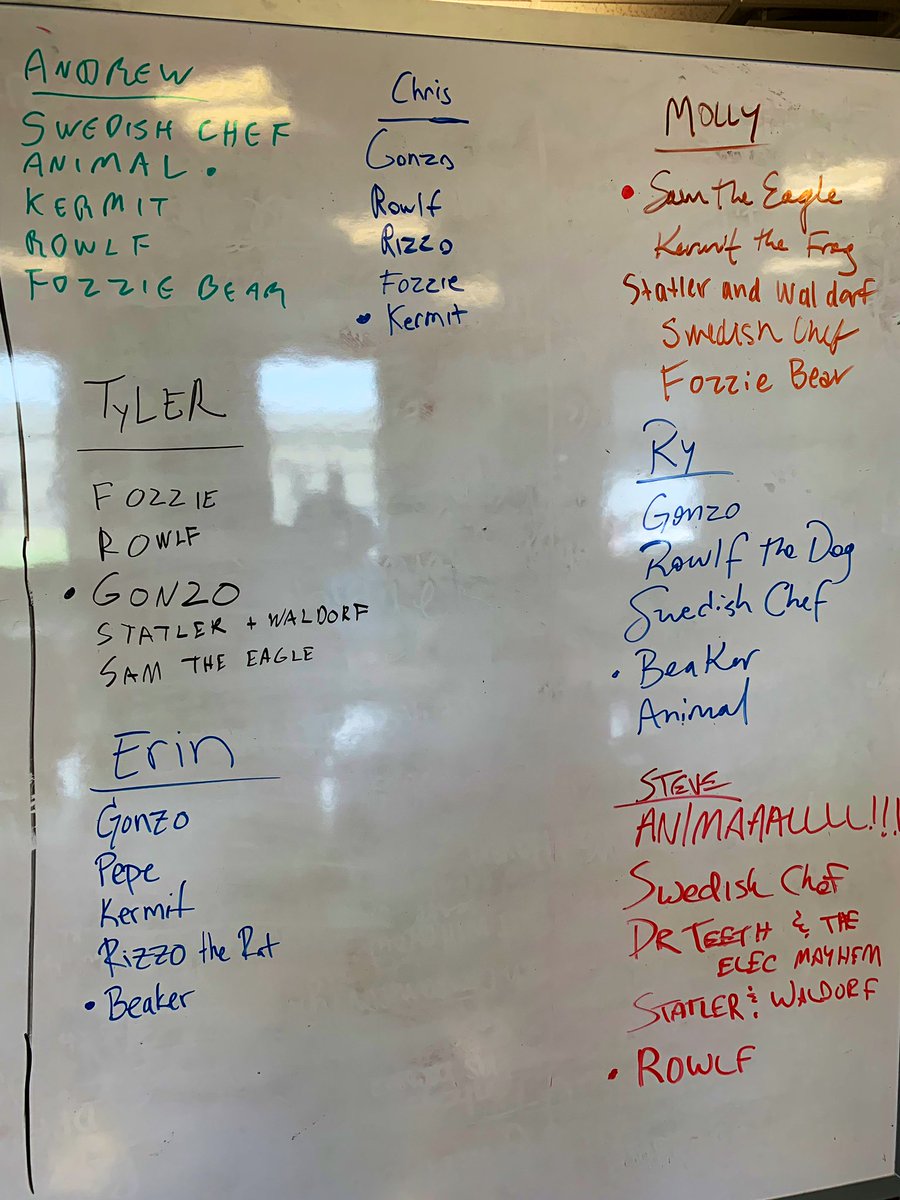 ANDREW
SWEDISH CHEF
ANIMAL •
KERMIT
ROWLF
FOZZIE BEAR
Chris
Gonzo
Rowlf
Rizzo
Fozzie
• Kermit
MOLLY
• Sam the Eagle
Kermit the Frog
Statler and Waldorf
Swedish Chef
Fozzie Bear
TyLER
FOZZIE
ROWLF
• GONZO
STATLER + WALDORF
SAM THE EAGLE
Ry
Gonzo
Rowlf the Dog
Swedish Chef
• Beaker
Animal
Erin
Gonzo
Pepe
Kermit
Rizzo the Rat
• Beaker
STEVE
ANIMAAALLLL!!!
Swedish Chef
DR TEETH & THE
ELEC MAYHEM
STATLER & WALDORF
• ROWLF